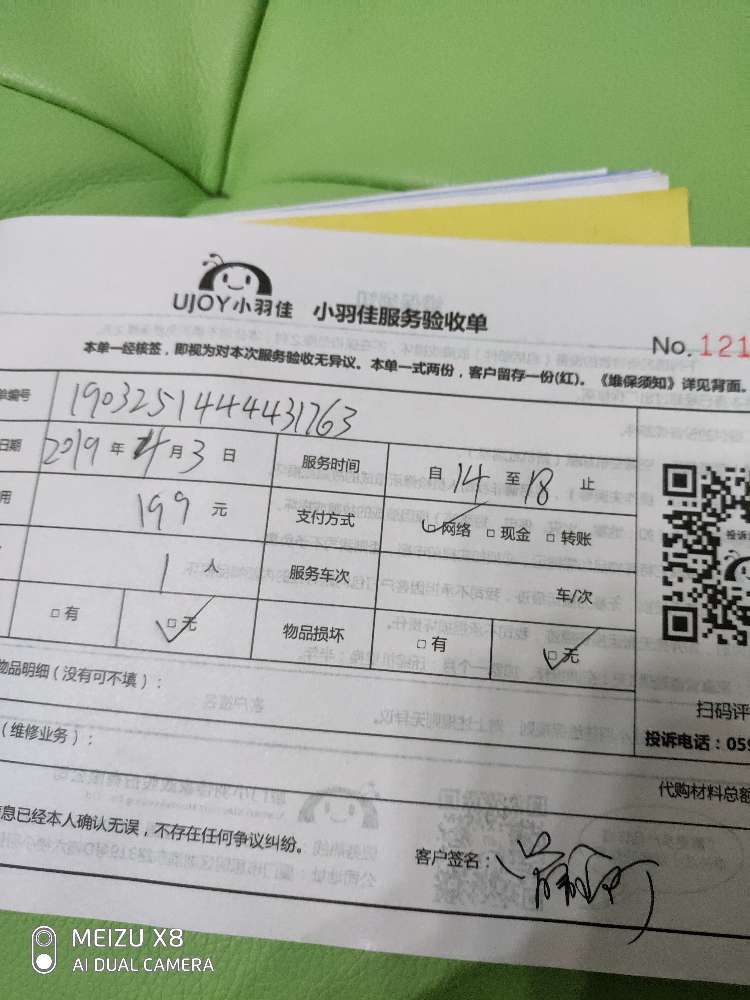 UJOY小羽佳 小羽佳服务验收单
No. 121
本单一经核签，即视为对本次服务验收无异议。本单一式两份，客户留存一份(红)。《维保须知》详见背面。
单编号 1903251444431763
日期 2019 年 4 月 3 日 服务时间 自 14 至 18 止
用 199 元 支付方式 网络 现金 转账
1 人 服务车次 车/次
有 无 物品损坏 有 无
投诉
物品明细（没有可不填）：
扫码评
（维修业务）：
投诉电话：059
代购材料总额
息已经本人确认无误，不存在任何争议纠纷。
客户签名：
MEIZU X8
AI DUAL CAMERA